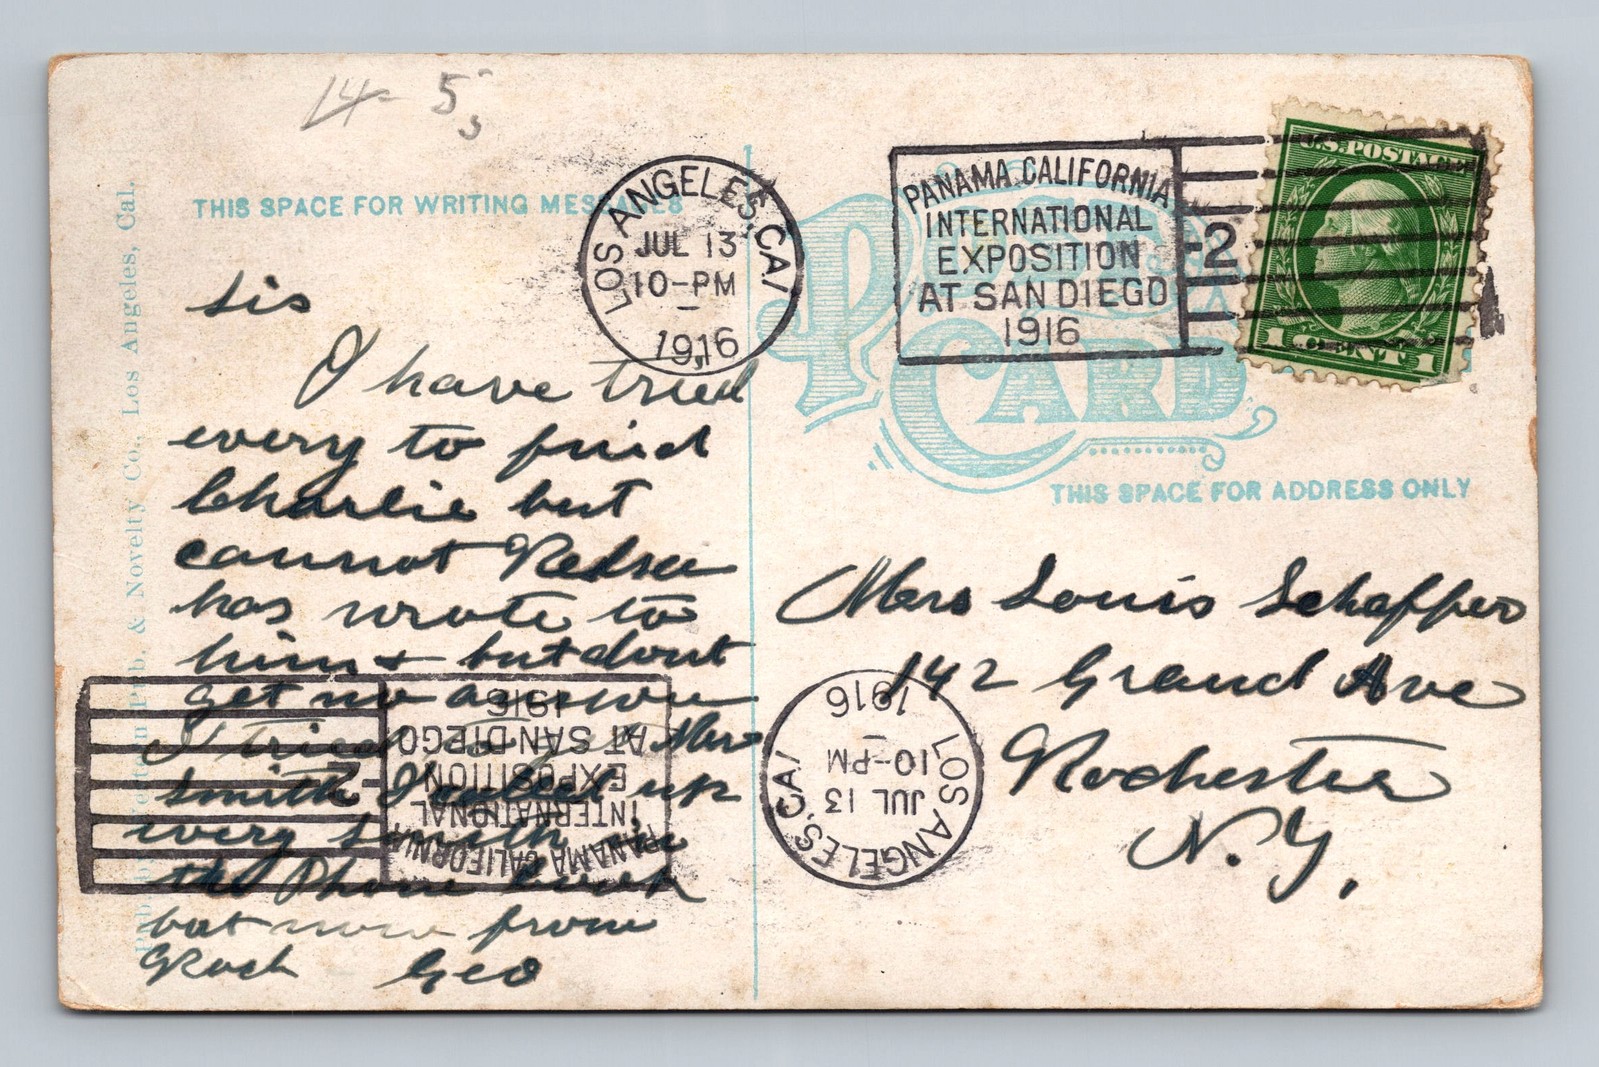 14 5
5
THIS SPACE FOR WRITING MESSAGES
LOS ANGELES, CAL
JUL 13
10-PM
1916
PANAMA CALIFORNIA
INTERNATIONAL
EXPOSITION
AT SAN DIEGO
1916
2
U.S. POSTAGE
1 CENT 1
POST CARD
THIS SPACE FOR ADDRESS ONLY
Sis
I have tried
every to find
Charlie but
cannot
has wrote to
him & but dont
get no answer
I tried to get Mrs
Smith I called up
every Smith in
the Phone book
but none from
Roch Geo
Mrs Louis Schaffer
142 Grand Ave
Rochester
N.Y.
PANAMA CALIFORNIA
INTERNATIONAL
EXPOSITION
AT SAN DIEGO
1916
2
LOS ANGELES, CAL
JUL 13
10-PM
1916
Pub. & Novelty Co., Los Angeles, Cal.